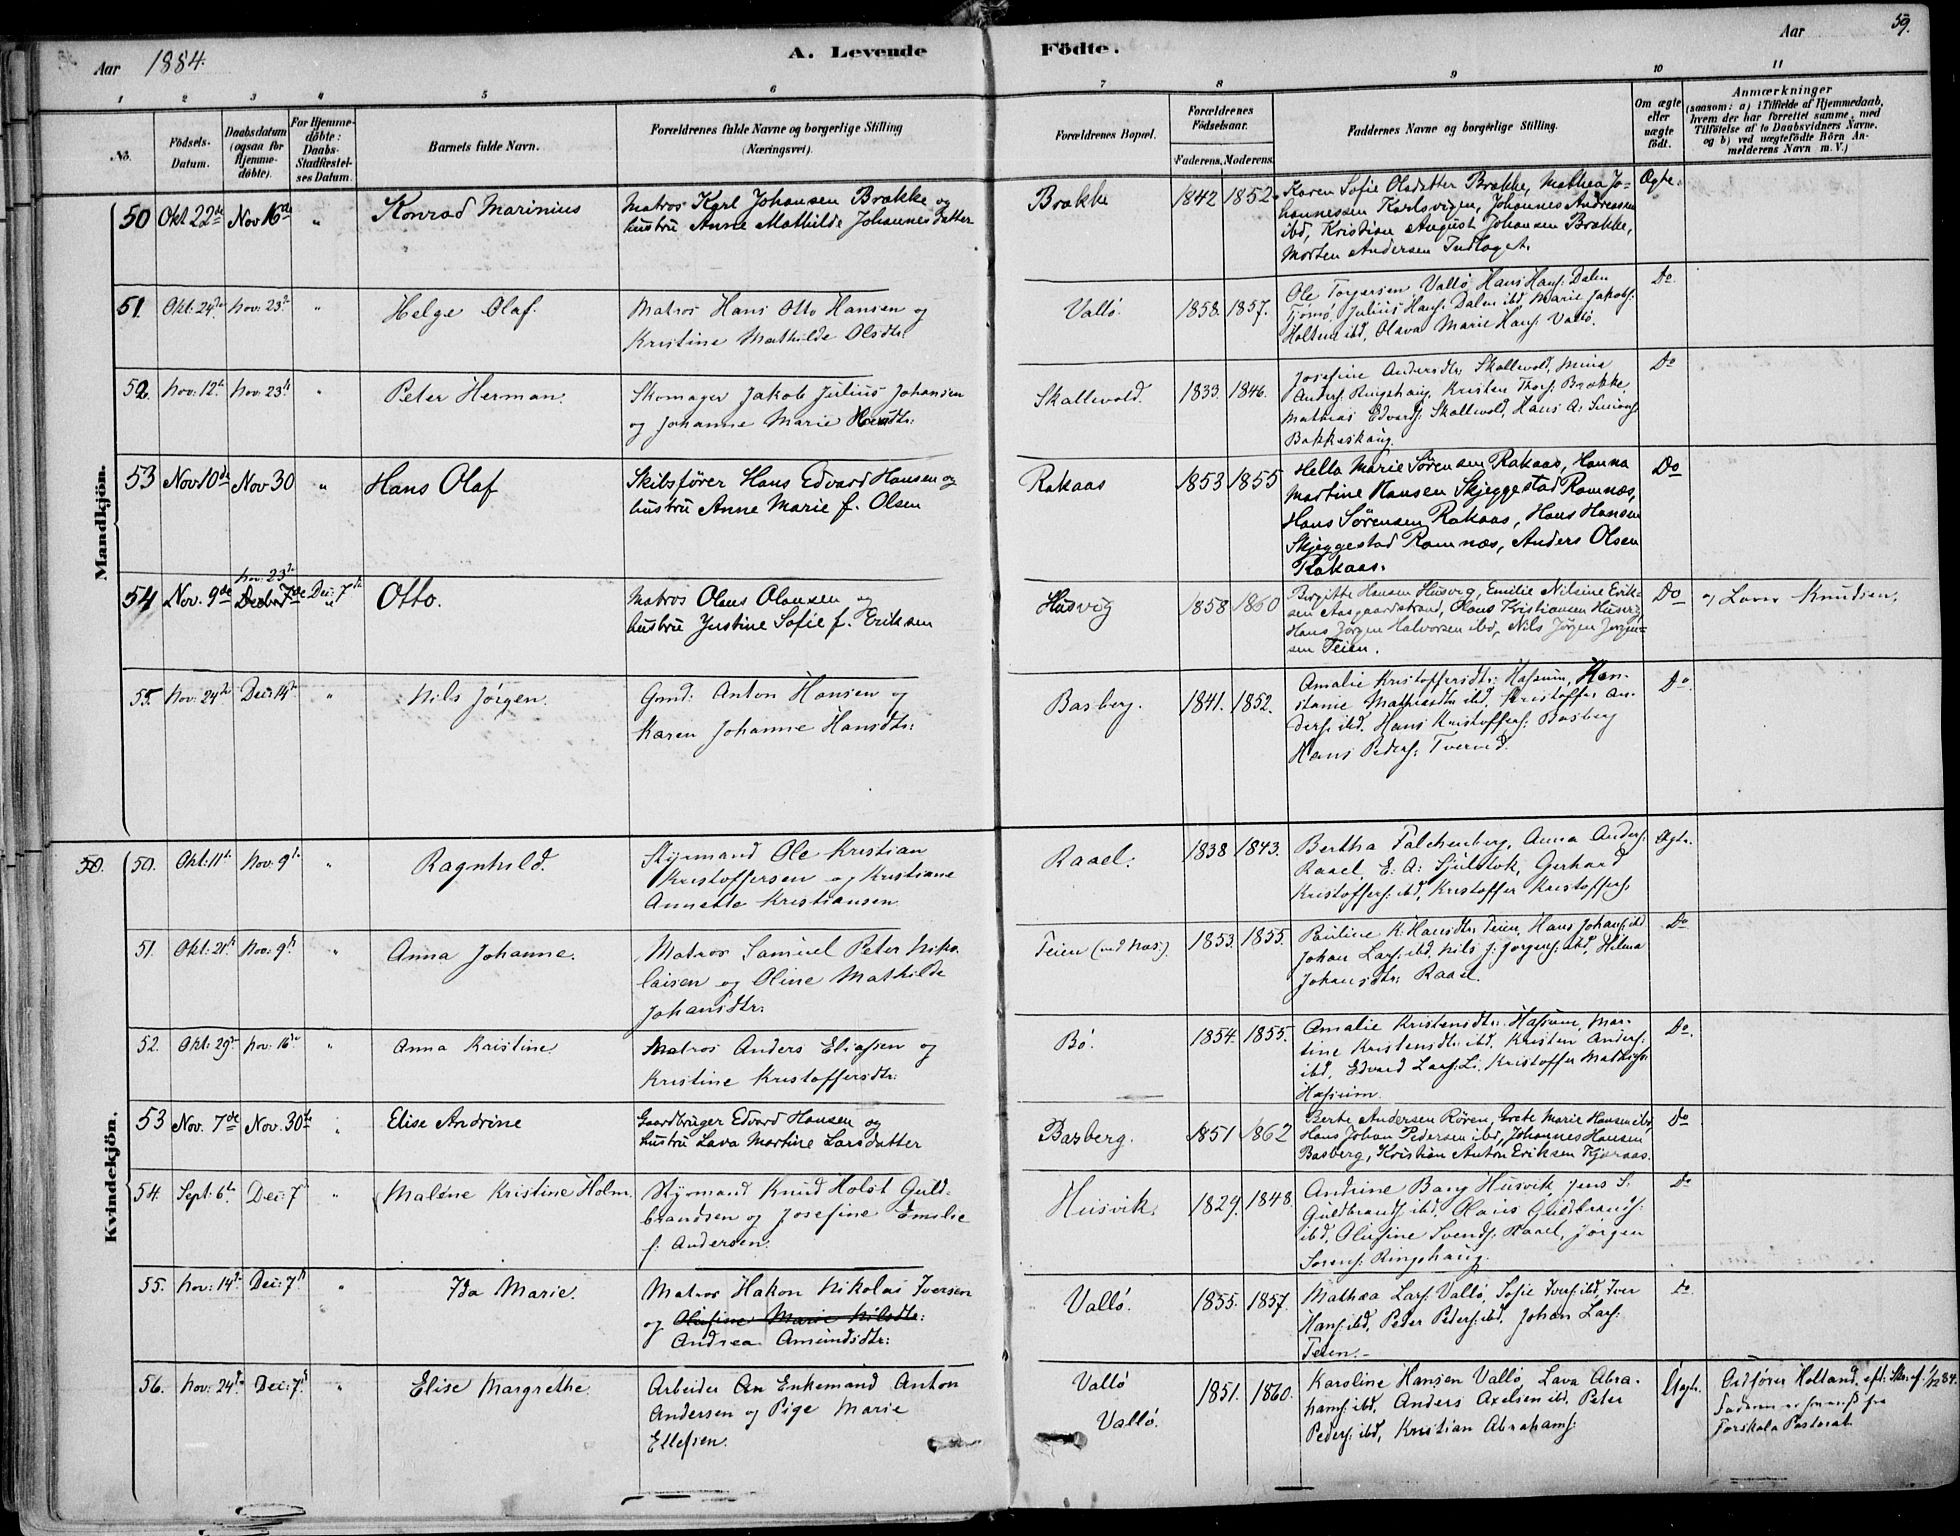 Aar 1884. A. Levende Födte. Aar 59.
1 2 3 4 5 6 7 8 9 10 11
No. Födsels-Datum. Daabsdatum (ogsaa for Hjemmedöbte). For Hjemmedöbte: Daabs-Stadfæstelses Datum. Barnets fulde Navn. Forældrenes fulde Navne og borgerlige Stilling (Næringsvei). Forældrenes Bopæl. Forældrenes Födselsaar. Faderens. Moderens. Faddernes Navne og borgerlige Stilling. Om ægte eller uægte födt. Anmærkninger (saasom: a) i Tilfælde af Hjemmedaab, hvem der har forrettet samme, med Tilföielse af to Daabsvidners Navne, og b) ved uægtefödte Börn Anmelderens Navn m. V.)
Mandkjön.
50 Okt 22de Nov 16de " Konrad Marinius Matros Karl Johansen Brække og
hustru Anne Mathilde Johannesdatter
Brække 1842 1852 Karen Sofie Olsdatter Brække, Mathea Jo-
hannessen Karlsvigen, Johannes Andreassen
ibd, Kristian August Johansen Brække,
Morten Andersen Indlaget.
Ægte.
51. Okt: 24de Nov: 23de " Helge Olaf. Matros Hans Otto Hansen og
Kristine Mathilde Olsdtr:
Vallö. 1858. 1857. Ole Torgersen Vallö, Hans Hans: Dalen
Tjömö, Julius Hans: Dalen ibd, Marie Jakobs:
Holtene ibd, Olava Marie Hans: Vallö.
Do
52. Nov: 12te Nov: 23de " Peter Herman. Skomager Jakob Julius Johansen
og Johanne Marie
Skallevold. 1833. 1846. Josefine Andersdtr: Skallevold, Mina
Anders: Ringshaug, Kristen Thors: Brække,
Mathias Edvards: Skallevold, Hans A: Simons:
Bakkeskaug.
Do
53 Nov 10de Nov 30 " Hans Olaf Skibsförer Hans Edvard Hansen og
hustru Anne Marie f. Olsen
Rakaas 1853 1855 Hella Marie Sörensen Rakaas, Hanna
Martine Hansen Skjeggestad Ramnæs,
Hans Sörensen Rakaas, Hans Hansen
Skjeggestad Ramnæs, Anders Olsen
Rakaas.
Do
54 Nov. 9de Nov: 23de Decbr 7de Dec: 7de Otto. Matros Olaus Olausen og
hustru Justine Sofie f. Eriksen
Husvig 1858 1860 Birgitte Hansen Husvig, Emilie Nilsine Erik-
sen Aasgaardstrand, Olaus Kristiansen Husvig,
Hans Jörgen Halvorsen ibd, Nils Jörgen Jörgen-
sen Teien.
Do a) Laver Knudsen,
55. Nov: 24de Dec: 14de " Nils Jörgen. Gmd: Anton Hansen og
Karen Johanne Hansdtr:
Basberg. 1841. 1852. Amalie Kristoffersdtr: Hassum, Kon-
stanse Mathiasdtr: ibd, Kristoffer An-
ders: ibd. Hans Kristoffers: Basberg
Hans Peders: Tverved.
Do.
Kvindekjön.
50. 50. Okt: 11te Nov: 9de " Ragnhild. Styrmand Ole Kristian
Kristoffersen og Kristiane
Annette Kristiansen
Raael. 1838 1843. Bertha Falchenberg, Anna Anders:
Raael, E: A: Sjulstok, Gerhard
Kristoffers: ibd, Kristoffer Kristoffers:
Ægte.
51. Okt: 21de Nov: 9de " Anna Johanne. Matros Samuel Peter Niko-
laisen og Oline Mathilde
Johansdtr:
Teien (ved Næs). 1853. 1855. Pauline K: Hansdtr: Teien, Hans Johans: ibd
Johan Lars: ibd, Nils J: Jörgens: ibd, Helma
Johansdtr: Raael.
Do
52. Okt: 29de Nov: 16de " Anna Kristine. Matros Anders Eliassen og
Kristine Kristoffersdtr:
Bö. 1854. 1855. Amalie Kristensdtr: Hassum, Mar-
tine Kristensdtr: ibd, Kristen Anders:
ibd, Edvard Lars: Li, Kristoffer Mathias:
Hassum.
Do.
53 Nov. 7de Nov. 30te " Elise Andrine Gaardbruger Edvard Hansen og
hustru Lava Martine Larsdatter
Basberg. 1851 1862 Berte Andersen Rören, Grete Marie Hansen ibd,
Hans Johan Pedersen ibd, Johannes Hansen
Basberg, Kristian Anton Eriksen Kjæraas.
Do
54. Sept: 6te Dec: 7de " Malene Kristine Holm. Styrmand Knud Holst Guld-
brandsen og Josefine Emilie
f. Andersen.
Husvik. 1829. 1848. Andrine Bang Husvik, Jens S:
Guldbrands: ibd, Olaus Guldbrands:
ibd, Olufine Svends: Raael, Jörgen
Sörens: Ringshaug.
Do
55. Nov: 14de Dec: 7de " Ida Marie. Matros Hakon Nikolai Iversen
og Olufine Marie Nilsdtr:
Andrea Amundsdtr:
Vallö. 1855. 1857. Mathea Lars: Vallö, Sofie Ivers: ibd, Iver
Hans: ibd, Peder Peders: ibd, Johan Lars:
Teien.
Do
56. Nov: 24de Dec: 7de " Elise Margrethe. Arbeider An Enkemand Anton
Andersen og Pige Marie
Ellefsen.
Vallö
Vallö. 1851. 1860. Karoline Hansen Vallö, Lava Abra-
hams: ibd, Anders Axelsen ibd, Peter
Peders: ibd, Kristian Abrahams:
Uægte. Ordförer Holtand. eft: Skr. af 1/12 84.
Faderen er fra
Torskala Pastorat.